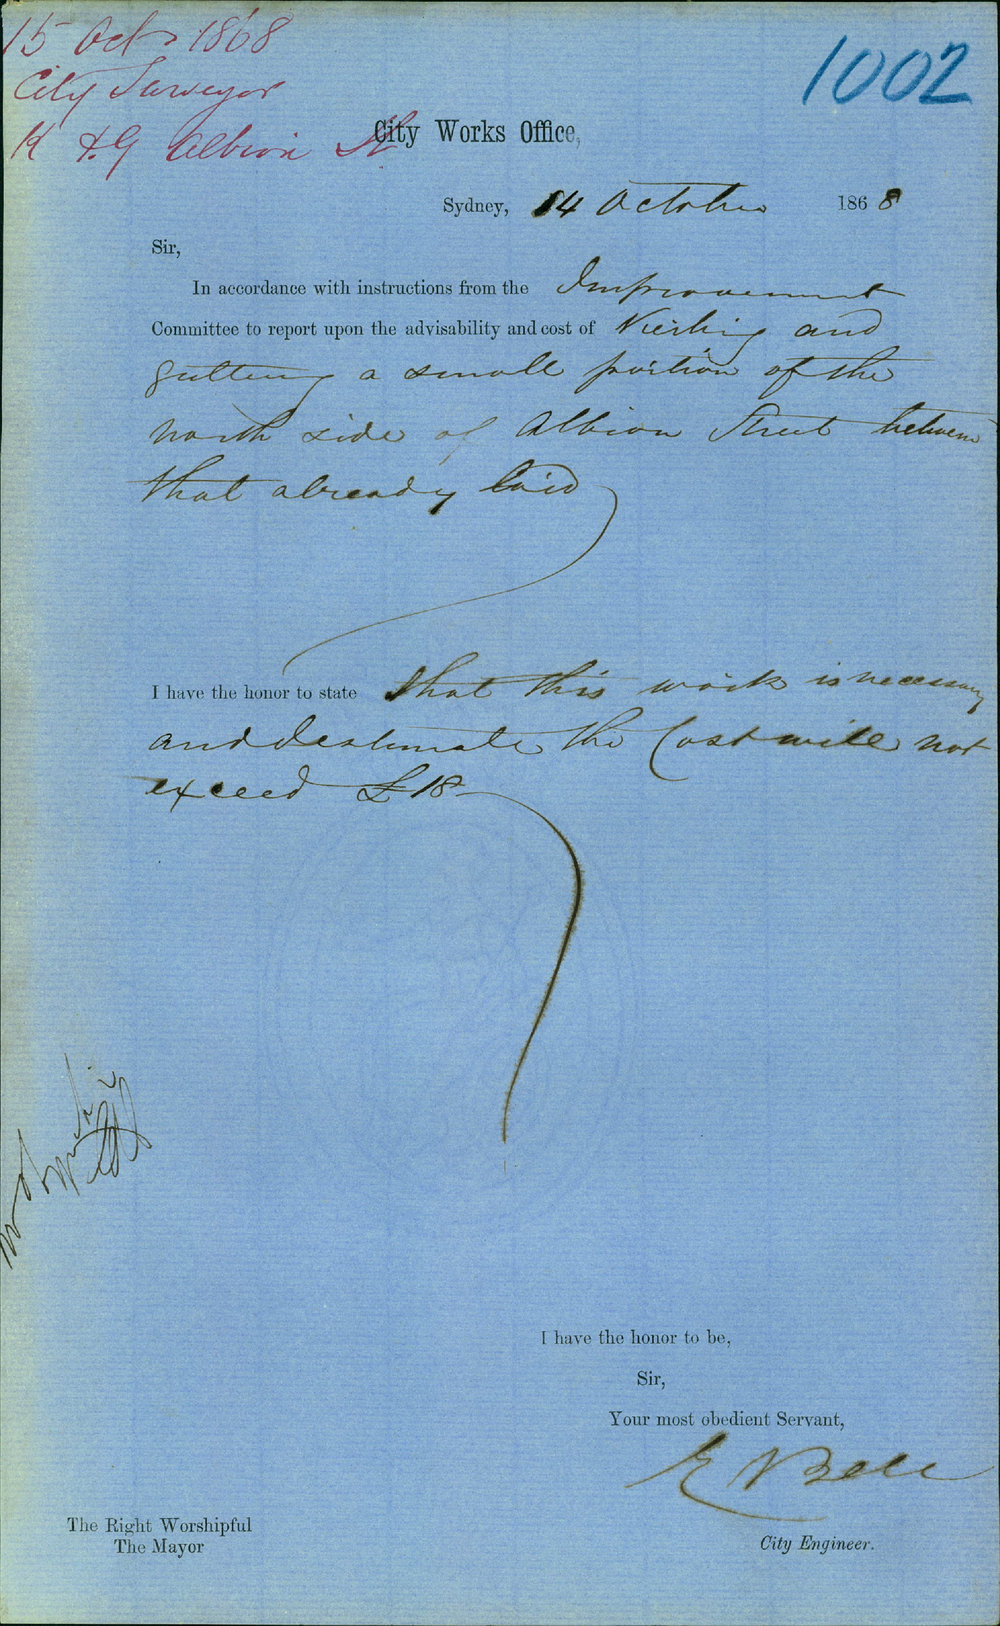 15 Oct 1868
City Surveyor
K & G Albion St
1002
City Works Office,
Sydney, 14 October 1868
Sir,
In accordance with instructions from the Improvement
Committee to report upon the advisability and cost of Kerbing and
guttering a small portion of the
north side of Albion Street between
that already laid
I have the honor to state that this work is necessary
and I estimate the Cost will not
exceed £18
I have the honor to be,
Sir,
Your most obedient Servant,
E Bell
City Engineer.
The Right Worshipful
The Mayor